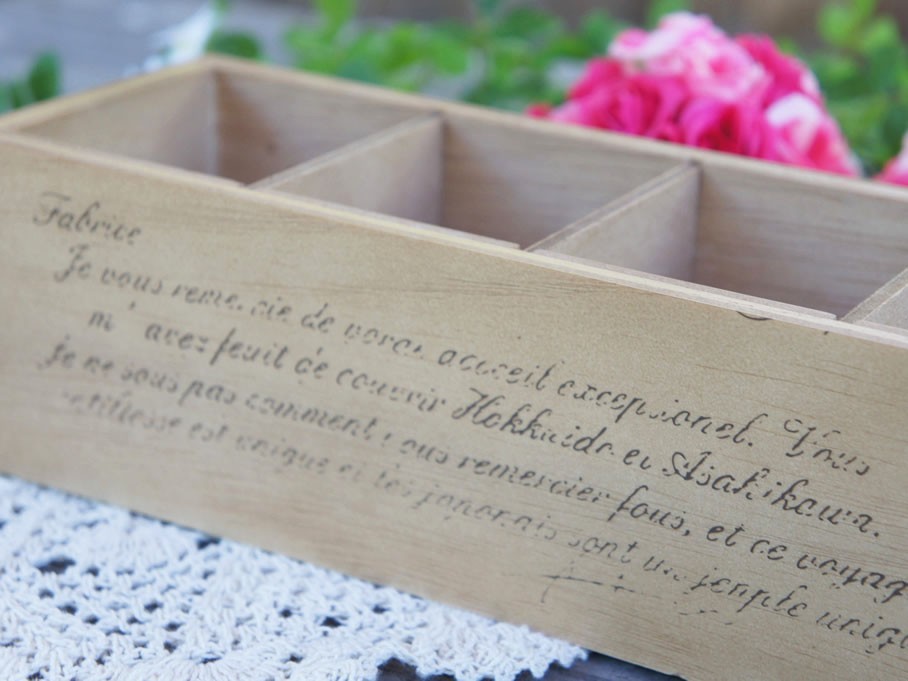 Fabrice
Je vous reme cie de accueil excepsionel. Vous
m' avez feuit de couvrir Hokkaido et Asahikawa.
je ne sous pas comment vous remercier fous, et ce voyag
est unique et les japonais sont un jenple uniq